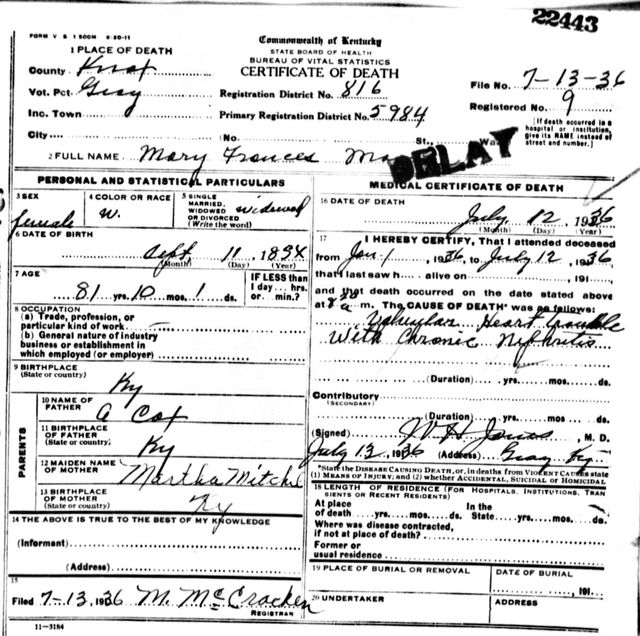 22443
FORM V S 1 500M 6-20-11
Commonwealth of Kentucky
STATE BOARD OF HEALTH
BUREAU OF VITAL STATISTICS
CERTIFICATE OF DEATH
1 PLACE OF DEATH
County Knox
Vot. Pct Gray
Inc. Town
City (No. St., Wa
Registration District No. 816
Primary Registration District No. 5984
File No. 7-13-36
Registered No. 9
[If death occurred in a
hospital or institution,
give its NAME instead of
street and number.]
2 FULL NAME Mary Frances
DELAY
PERSONAL AND STATISTICAL PARTICULARS
3 SEX
female
4 COLOR OR RACE
w.
5 SINGLE
MARRIED,
WIDOWED
OR DIVORCED
(Write the word)
widowed
6 DATE OF BIRTH
Sept 11, 1854
(Month) (Day) (Year)
7 AGE
81 yrs. 10 mos. 1 ds.
IF LESS than
1 day hrs.
or min.?
8 OCCUPATION
(a) Trade, profession, or
particular kind of work
(b) General nature of industry
business or establishment in
which employed (or employer)
9 BIRTHPLACE
(State or country)
Ky
PARENTS
10 NAME OF
FATHER
A Cox
11 BIRTHPLACE
OF FATHER
(State or country)
Ky
12 MAIDEN NAME
OF MOTHER
Martha Mitchel
13 BIRTHPLACE
OF MOTHER
(State or country)
Ky
14 THE ABOVE IS TRUE TO THE BEST OF MY KNOWLEDGE
(Informant)
(Address)
15
Filed 7-13, 1936 M. McCracken
REGISTRAR
11-3184
MEDICAL CERTIFICATE OF DEATH
16 DATE OF DEATH
July 12, 1936
(Month) (Day) (Year)
17 I HEREBY CERTIFY, That I attended deceased
from Jan 1, 1936, to July 12, 1936,
that I last saw h alive on , 191 ,
and that death occurred on the date stated above
at a m. The CAUSE OF DEATH* was as follows:
Valvular Heart trouble
With Chronic Niphritis
(Duration) yrs. mos. ds.
Contributory
(SECONDARY)
(Duration) yrs. mos. ds.
(Signed) W H Jones, M. D.
July 13, 1936 (Address) Gray, Ky.
*State the DISEASE CAUSING DEATH, or, in deaths from VIOLENT CAUSES state
(1) MEANS OF INJURY; and (2) whether ACCIDENTAL, SUICIDAL or HOMICIDAL
18 LENGTH OF RESIDENCE (FOR HOSPITALS, INSTITUTIONS, TRAN
SIENTS OR RECENT RESIDENTS)
At place In the
of death yrs. mos. ds. State yrs. mos. ds.
Where was disease contracted,
if not at place of death?
Former or
usual residence
19 PLACE OF BURIAL OR REMOVAL
DATE OF BURIAL
, 191
20 UNDERTAKER
ADDRESS